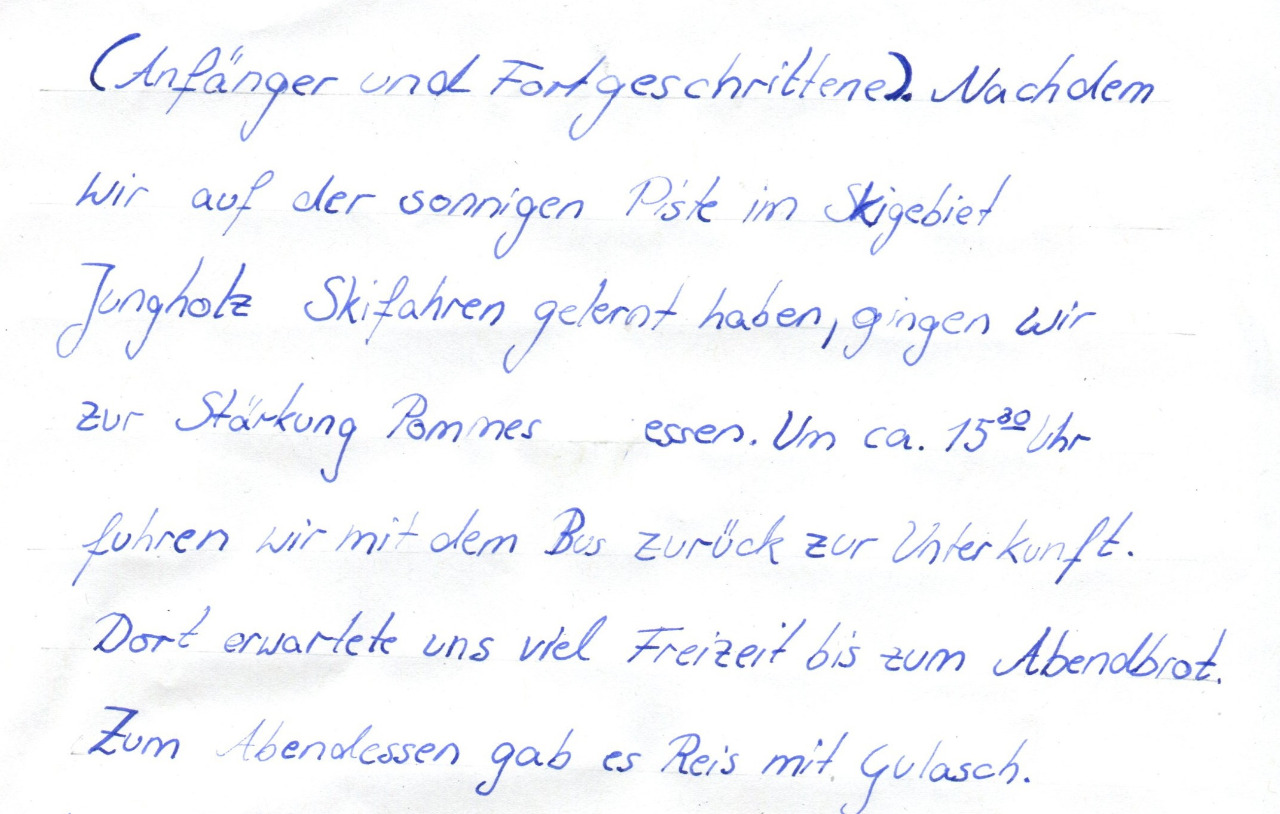 (Anfänger und Fortgeschrittene). Nachdem
wir auf der sonnigen Piste im Skigebiet
Jungholz Skifahren gelernt haben, gingen wir
zur Stärkung Pommes essen. Um ca. 15³⁰ Uhr
fuhren wir mit dem Bus zurück zur Unterkunft.
Dort erwartete uns viel Freizeit bis zum Abendbrot.
Zum Abendessen gab es Reis mit Gulasch.